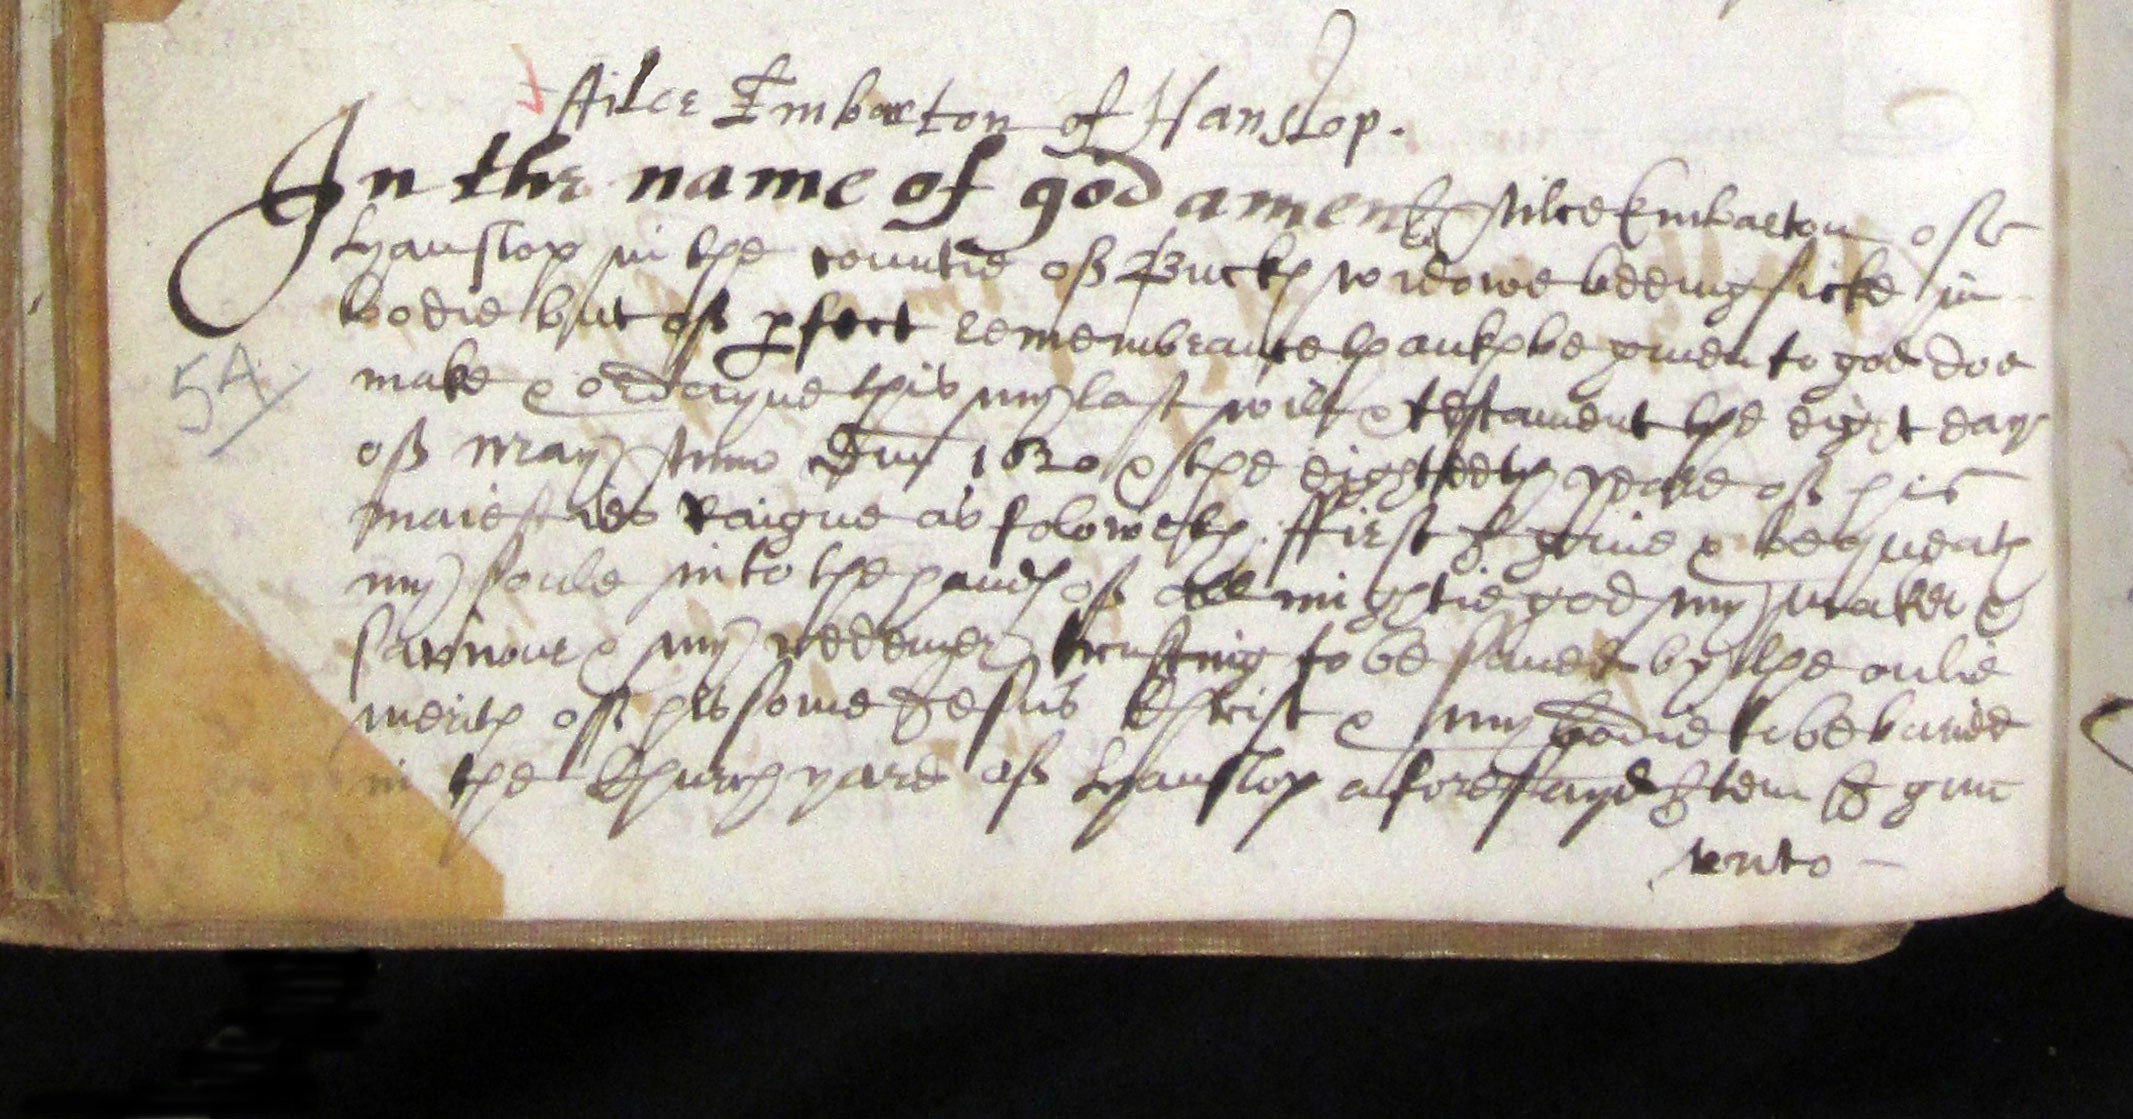 Ailce Embarton of Hanslop.
In the name of god amen I Ailce Embarton off
Hanslop in the countie off Buckp widowe beeing sicke in
bodie but off pfect remembrance thankp be given to god doe
make & ordayne this my last will & testament the eight day
off may Anno Dm 1620 & the eighteeth yeare off his
maiesties Raigne as foloweth. ffirst I giue & bequeath
my soule into the handp off allmightie god my maker &
saviour & my redemer trusting to be saued by the onlie
meritp off his sonne Jesus Christ & my bodie to be buried
in the Churchyard off Hanslop aforesayd Item I giue
vnto
54